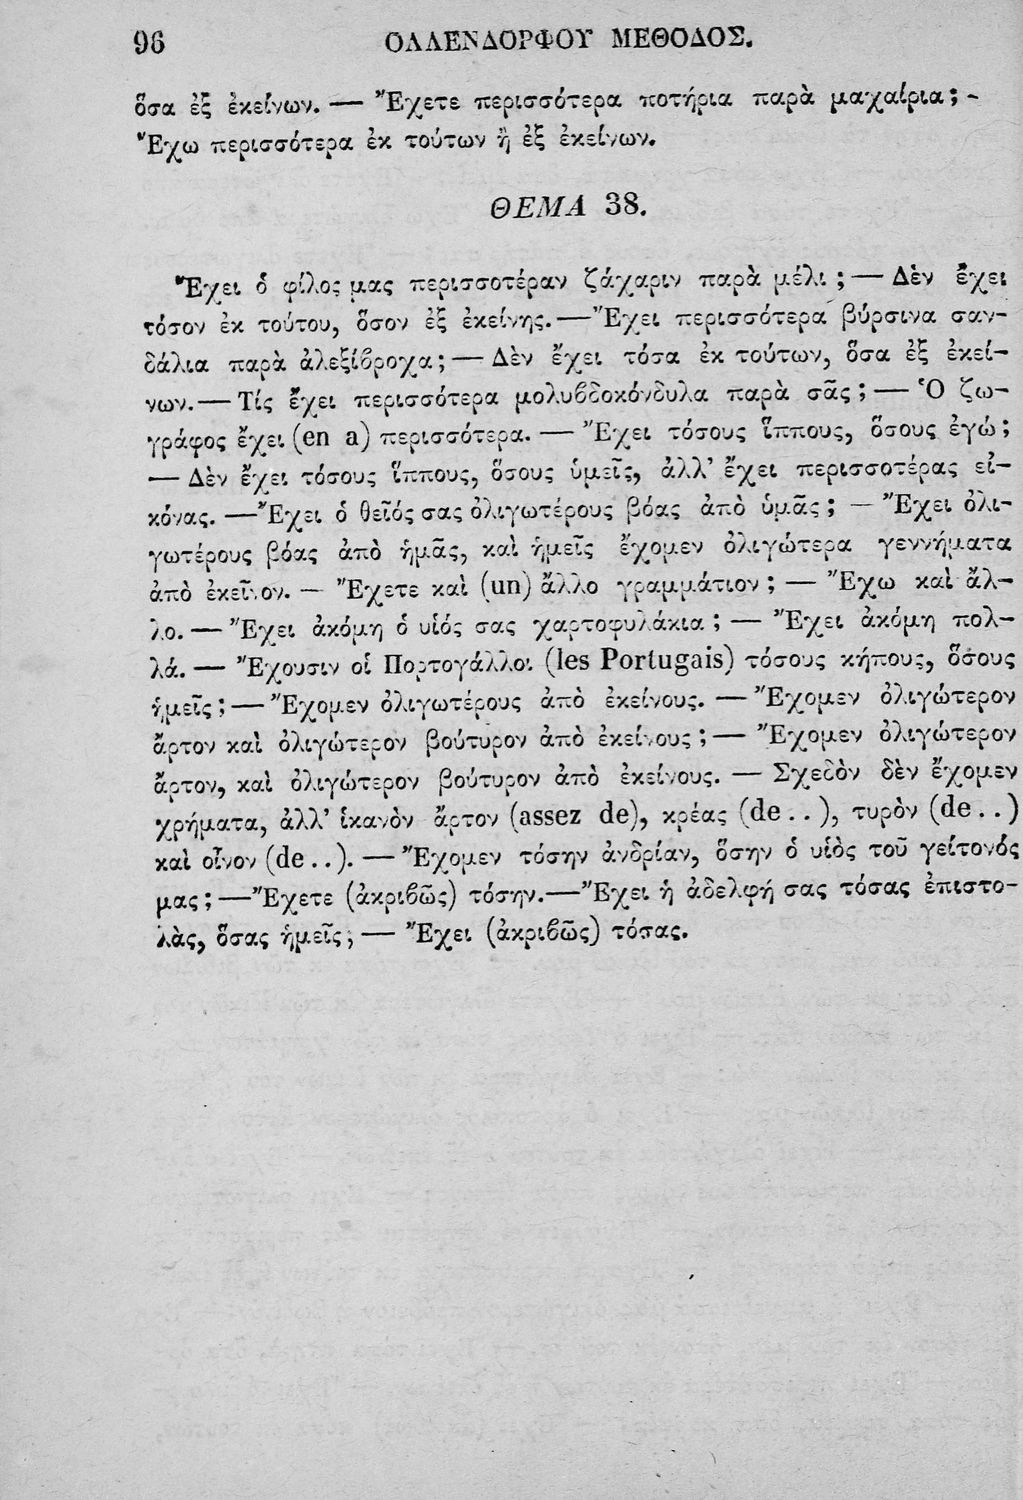 96 ΟΛΛΕΝΔΟΡΦΟΥ ΜΕΘΟΔΟΣ.
ὅσα ἐξ ἐκείνων. — Ἔχετε περισσότερα ποτήρια παρὰ μαχαίρια; -
Ἔχω περισσότερα ἐκ τούτων ἢ ἐξ ἐκείνων.
ΘΕΜΑ 38.
Ἔχει ὁ φίλος μας περισσοτέραν ζάχαριν παρὰ μέλι; — Δὲν ἔχει
τόσον ἐκ τούτου, ὅσον ἐξ ἐκείνης. — Ἔχει περισσότερα βύρσινα σαν-
δάλια παρὰ ἀλεξίβροχα; — Δὲν ἔχει τόσα ἐκ τούτων, ὅσα ἐξ ἐκεί-
νων. — Τίς ἔχει περισσότερα μολυβδοκόνδυλα παρὰ σᾶς; — Ὁ ζω-
γράφος ἔχει (en a) περισσότερα. — Ἔχει τόσους ἵππους, ὅσους ἐγώ;
— Δὲν ἔχει τόσους ἵππους, ὅσους ὑμεῖς, ἀλλ’ ἔχει περισσοτέρας εἰ-
κόνας. — Ἔχει ὁ θεῖός σας ὀλιγωτέρους βόας ἀπὸ ὑμᾶς; — Ἔχει ὀλι-
γωτέρους βόας ἀπὸ ἡμᾶς, καὶ ἡμεῖς ἔχομεν ὀλιγώτερα γεννήματα
ἀπὸ ἐκεῖνον. — Ἔχετε καὶ (un) ἄλλο γραμμάτιον; — Ἔχω καὶ ἄλ-
λο. — Ἔχει ἀκόμη ὁ υἱός σας χαρτοφυλάκια; — Ἔχει ἀκόμη πολ-
λά. — Ἔχουσιν οἱ Πορτογάλλοι (les Portugais) τόσους κήπους, ὅσους
ἡμεῖς; — Ἔχομεν ὀλιγωτέρους ἀπὸ ἐκείνους. — Ἔχομεν ὀλιγώτερον
ἄρτον καὶ ὀλιγώτερον βούτυρον ἀπὸ ἐκείνους; — Ἔχομεν ὀλιγώτερον
ἄρτον, καὶ ὀλιγώτερον βούτυρον ἀπὸ ἐκείνους. — Σχεδὸν δὲν ἔχομεν
χρήματα, ἀλλ’ ἱκανὸν ἄρτον (assez de), κρέας (de . . ), τυρὸν (de . . )
καὶ οἶνον (de . . ). — Ἔχομεν τόσην ἀνδρίαν, ὅσην ὁ υἱὸς τοῦ γείτονός
μας; — Ἔχετε (ἀκριβῶς) τόσην. — Ἔχει ἡ ἀδελφή σας τόσας ἐπιστο-
λὰς, ὅσας ἡμεῖς; — Ἔχει (ἀκριβῶς) τόσας.